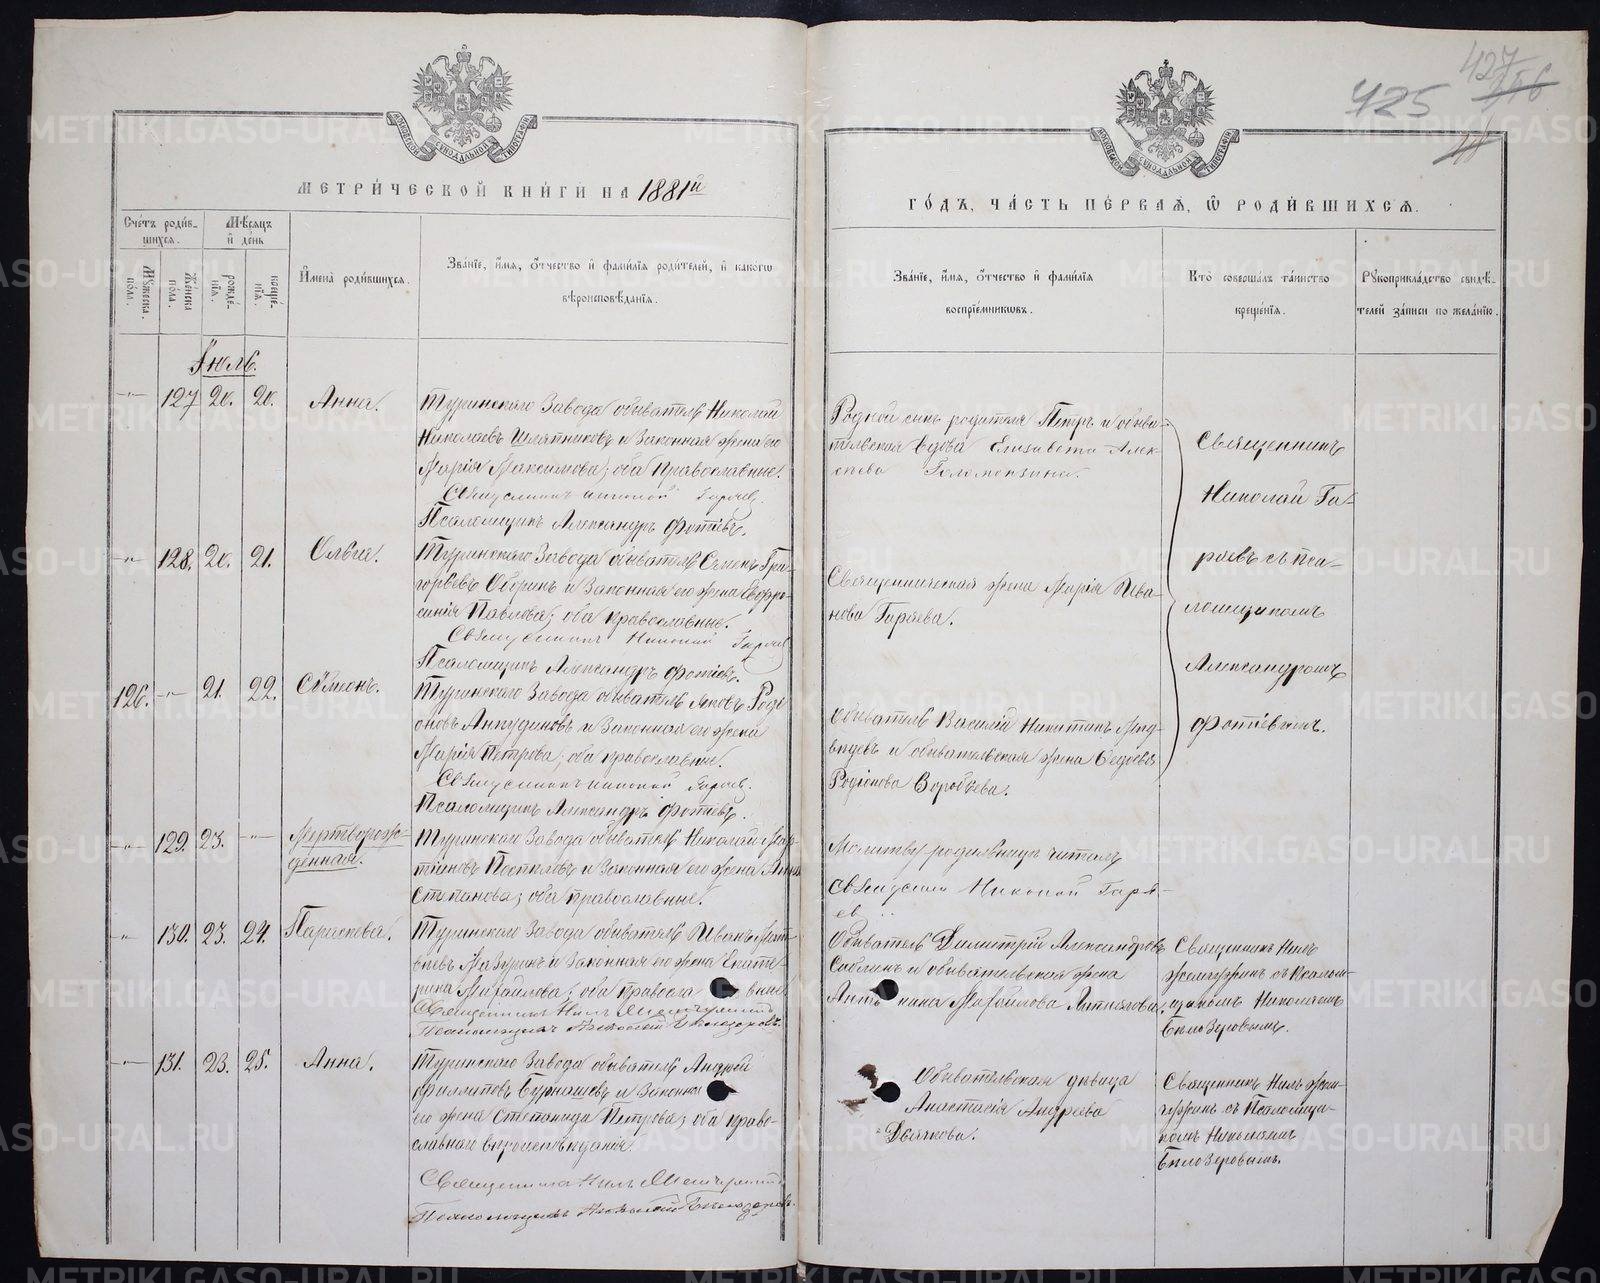 427
425
МОСКОВСКОЙ СИНОДАЛЬНОЙ ТИПОГРАФІИ
МОСКОВСКОЙ СИНОДАЛЬНОЙ ТИПОГРАФІИ
МЕТРИ́ЧЕСКОЙ КНИ́ГИ НА 1881й
ГО́ДЪ, ЧА́СТЬ ПЕ́РВАѦ, Ѡ РОДИ́ВШИХСѦ.
Сче́тъ роди́в-
шихсѧ.
Мѣ́сѧцъ
и҆ де́нь
Мꙋ́жеска по́ла.
Же́нска по́ла.
рожде́-
нїѧ.
креще́-
нїѧ.
И҆мена̀ роди́вшихсѧ.
Зва́нїе, и҆́мѧ, ѻ҆́тчество и҆ фами́лїѧ роди́телей, и҆ како́гѡ
вѣроисповѣ́данїѧ.
Зва́нїе, и҆́мѧ, ѻ҆́тчество и҆ фами́лїѧ
воспрїе́мникѡвъ.
Кто̀ соверша́лъ та́инство
креще́нїѧ.
Рꙋкоприкла́дство свидѣ́-
телей за́писи по жела́нїю.
Іюль.
127 20. 20. Анна.
Туринскаго Завода обыватель Николай
Николаевъ Шляпниковъ и Законная жена его
Марія Максимова; оба Православные.
Священникъ Николай Гаряев.
Псаломщикъ Александръ Фотіевъ.
Родной сынъ родителя Петръ и обыва-
тельская вдова Елизавета Алек-
Священникъ
Николай Га-
ряевъ съ пса-
ломщикомъ
Александромъ
Фотіевымъ.
128. 20. 21. Ольга.
Туринскаго Завода обыватель Семенъ Гри-
горьевъ Оборинъ и Законная его жена Евфро-
синія Павлова; оба православные.
Священникъ Николай Гаряев
Псаломщикъ Александръ Фотіевъ.
Священническая жена Марія Ива-
нова Гаряева.
126. 21. 22. Сѷмеонъ.
Туринскаго Завода обыватель Яковъ Роді-
оновъ Анкудиновъ и Законная его жена
Марія Петрова; оба православные.
Священникъ Николай Гаряев.
Псаломщикъ Александръ Фотіевъ.
Обыватель Василій Никитинъ Мед-
вѣдевъ и обывательская жена Ѳедосья
Родіонова Воробьева.
129. 23. Мертворож-
денная.
Туринскаго Завода обыватель Николай Мар-
тиновъ Постыловъ и Законная его жена Анна
Степанова; оба православные.
Молитву родильницѣ читалъ
Священник Николай Гаря-
ев
130. 23. 24. Параскева.
Туринскаго Завода обыватель Иванъ Мат-
вѣевъ Мазуринъ и Законная его жена Екате-
рина Михайлова; оба православные
Священникъ Нилъ
Псаломщикъ Николай Бѣлозеровъ.
Обыватель Димитрій Александровъ
Саблинъ и обывательская жена
Антонина Михайлова
Священникъ Нилъ
съ Псалом-
щикомъ Николаемъ
Бѣлозеровымъ.
131. 23. 25. Анна.
Туринскаго Завода обыватель Андрей
Филиповъ Бурнашевъ и Законная
его жена Степанида Петрова; оба право-
славнаго вѣроисповѣданія.
Священникъ Нилъ
Псаломщикъ Николай Бѣлозеровъ.
Обывательская дѣвица
Анастасія Андреева
Дьячкова.
Священникъ Нилъ
съ Псаломщи-
комъ Николаемъ
Бѣлозеровымъ.
METRIKI.GASO-URAL.RU